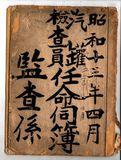 昭和十三年四月
汽罐
檢査員任命伺簿
監査係